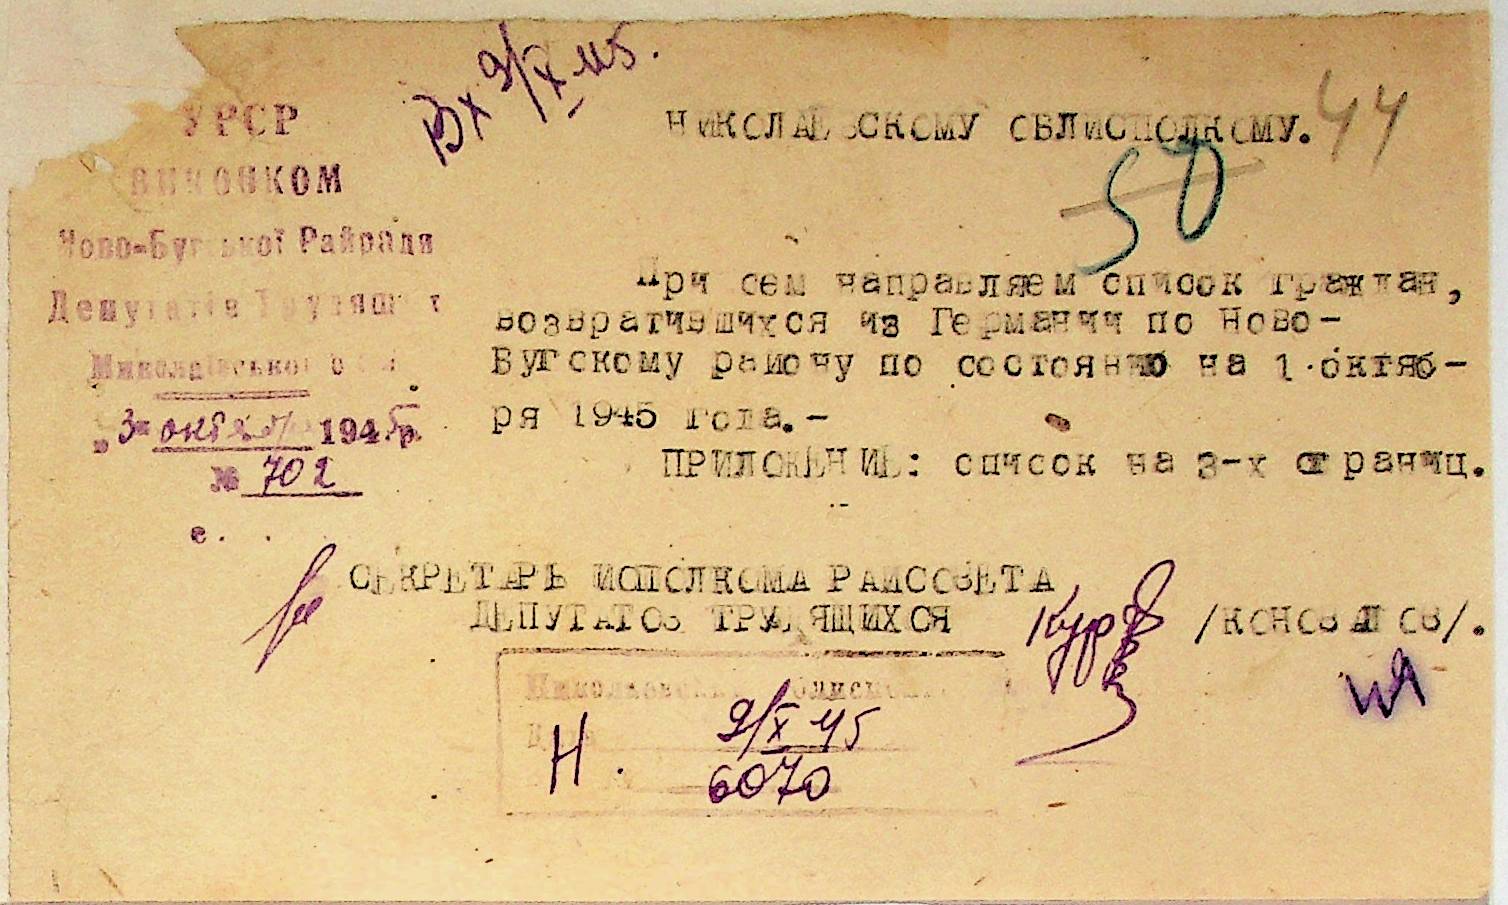 Вх 9/X 45.
44
НИКОЛАЕВСКОМУ ОБЛИСПОЛКОМУ.
50
УРСР
ВИКОНКОМ
Ново-Бугської Райради
Депутатів Трудящих
Миколаївської обл.
"3" октября 1945 р.
№ 702
При сем направляем список граждан,
возвратившихся из Германии по Ново-
Бугскому району по состоянию на 1 октяб-
ря 1945 года.-
ПРИЛОЖЕНИЕ: список на 3-х страниц.
СЕКРЕТАРЬ ИСПОЛКОМА РАЙСОВЕТА
ДЕПУТАТОВ ТРУДЯЩИХСЯ
/КОНОВАЛОВ/.
Н.
9/X 45
6070